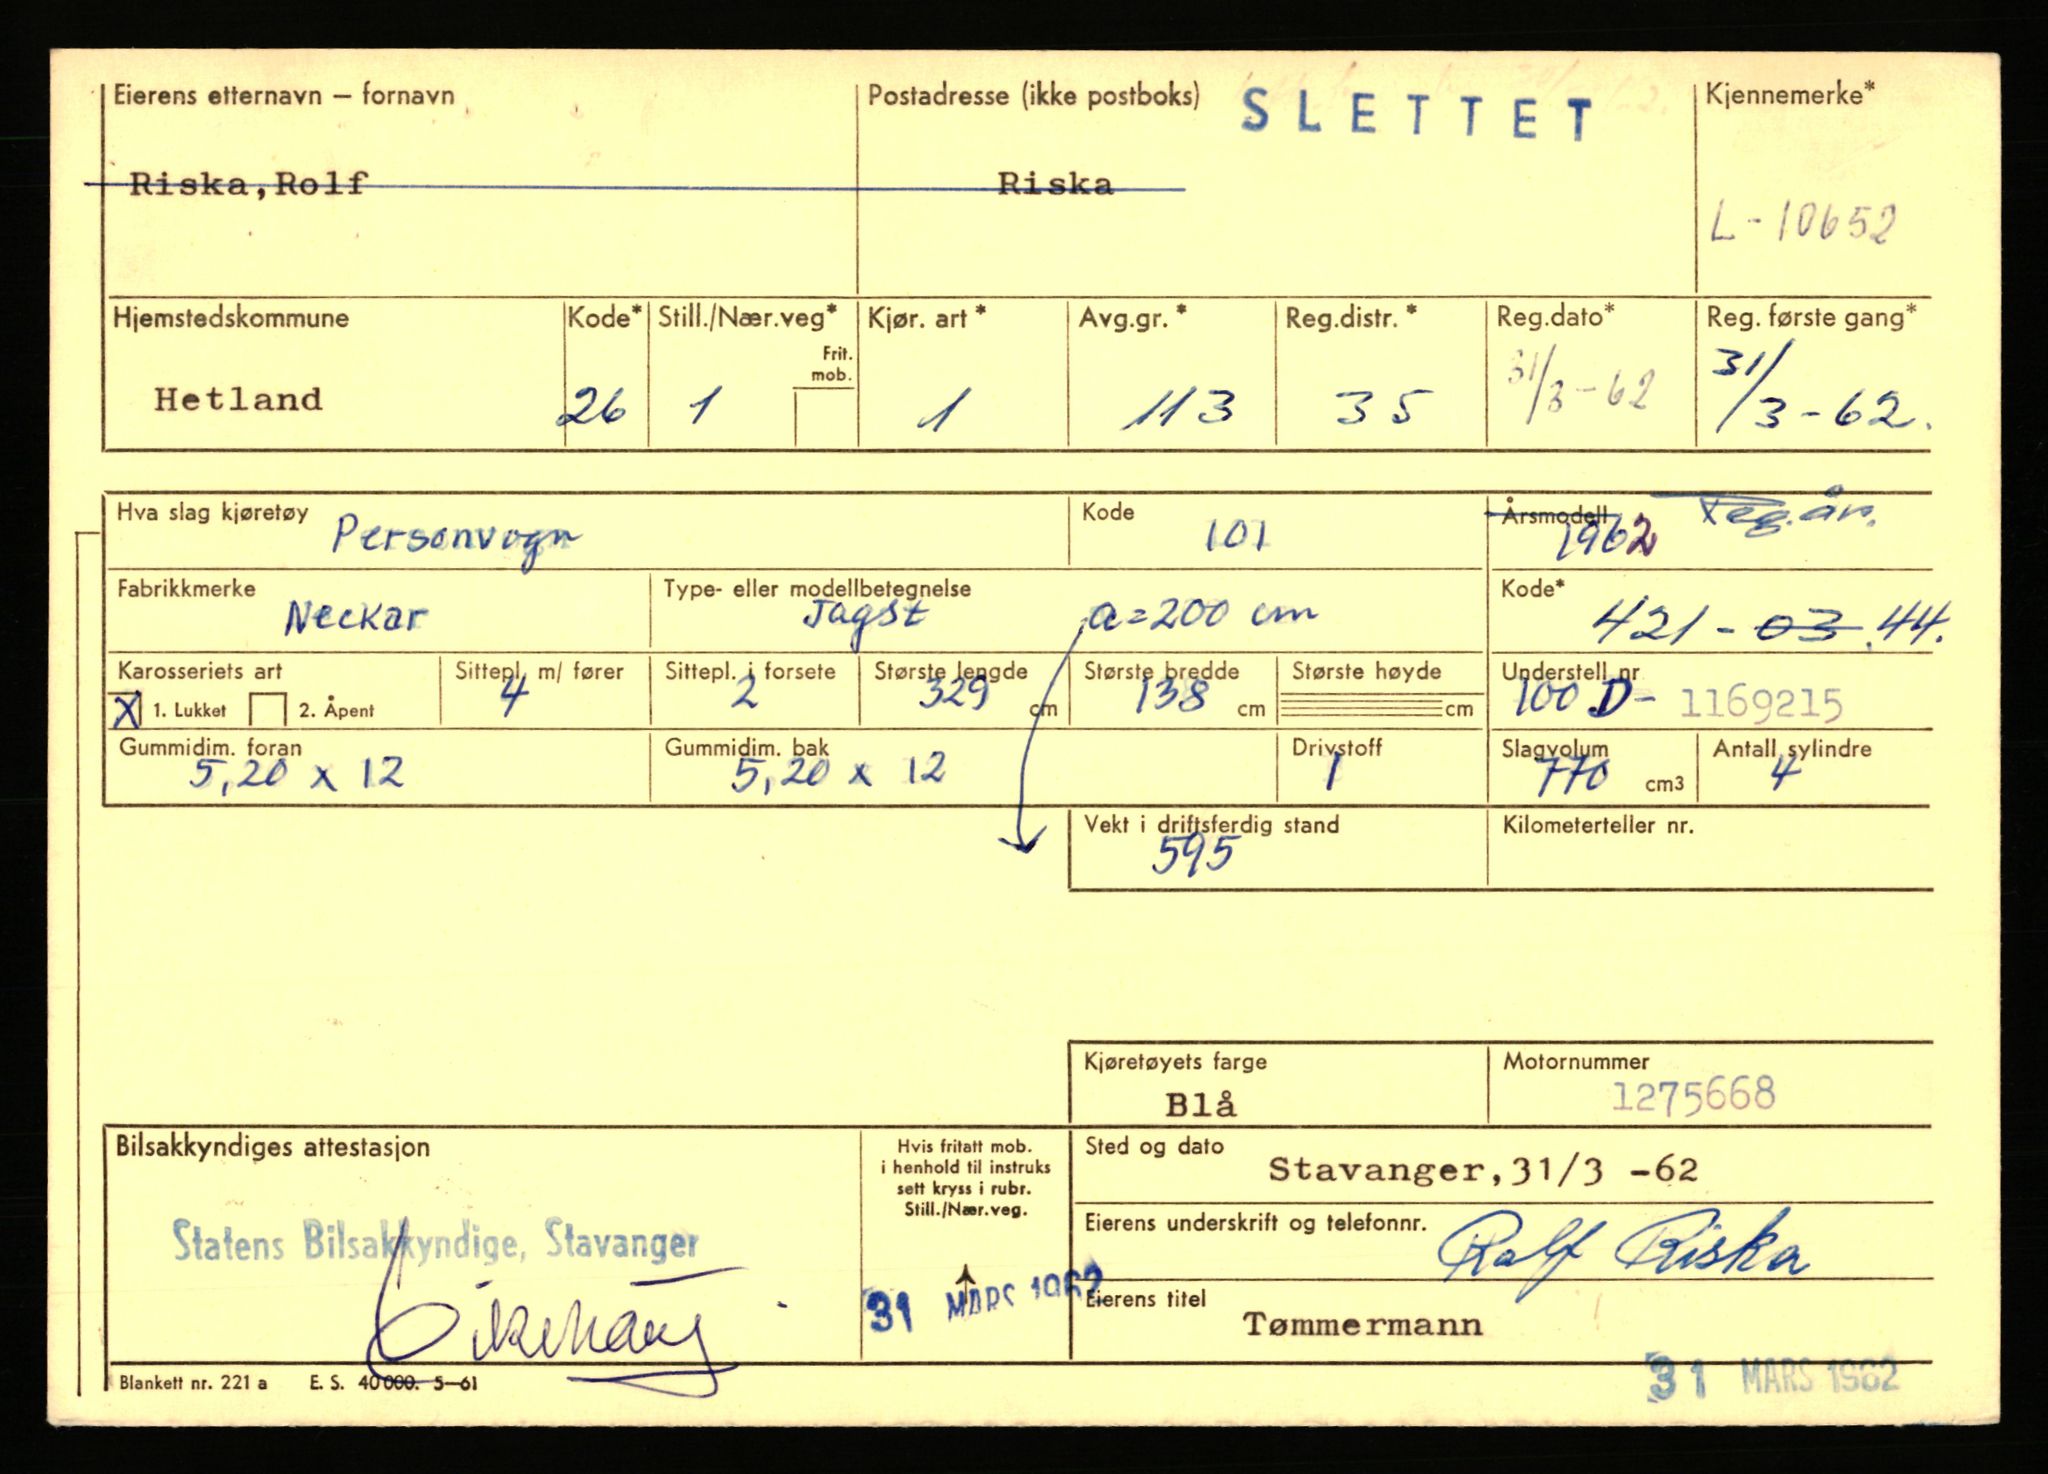 Eierens etternavn – fornavn
Postadresse (ikke postboks)
SLETTET
Kjennemerke*
Riska, Rolf
Riska
L-10652
Hjemstedskommune
Kode*
Still./Nær.veg*
Frit. mob.
Kjør. art *
Avg.gr. *
Reg.distr. *
Reg.dato*
Reg. første gang*
Hetland
26
1
1
113
35
31/3-62
31/3-62.
Hva slag kjøretøy
Personvogn
Kode
101
Årsmodell
Reg.år.
1962
Fabrikkmerke
Neckar
Type- eller modellbetegnelse
Jagst
a=200 cm
Kode*
421-03.44.
Karosseriets art
X 1. Lukket
2. Åpent
Sittepl. m/ fører
4
Sittepl. i forsete
2
Største lengde
329 cm
Største bredde
138 cm
Største høyde
cm
Understell nr
100 D- 1169215
Gummidim. foran
5,20 x 12
Gummidim. bak
5,20 x 12
Drivstoff
1
Slagvolum
770 cm3
Antall sylindre
4
Vekt i driftsferdig stand
595
Kilometerteller nr.
Kjøretøyets farge
Blå
Motornummer
1275668
Bilsakkyndiges attestasjon
Statens Bilsakkyndige, Stavanger
Hvis fritatt mob.
i henhold til instruks
sett kryss i rubr.
Still./Nær.veg.
31 MARS 1962
Sted og dato
Stavanger, 31/3 -62
Eierens underskrift og telefonnr.
Rolf Riska
Eierens titel
Tømmermann
Blankett nr. 221 a E. S. 40 000. 5–61
31 MARS 1962